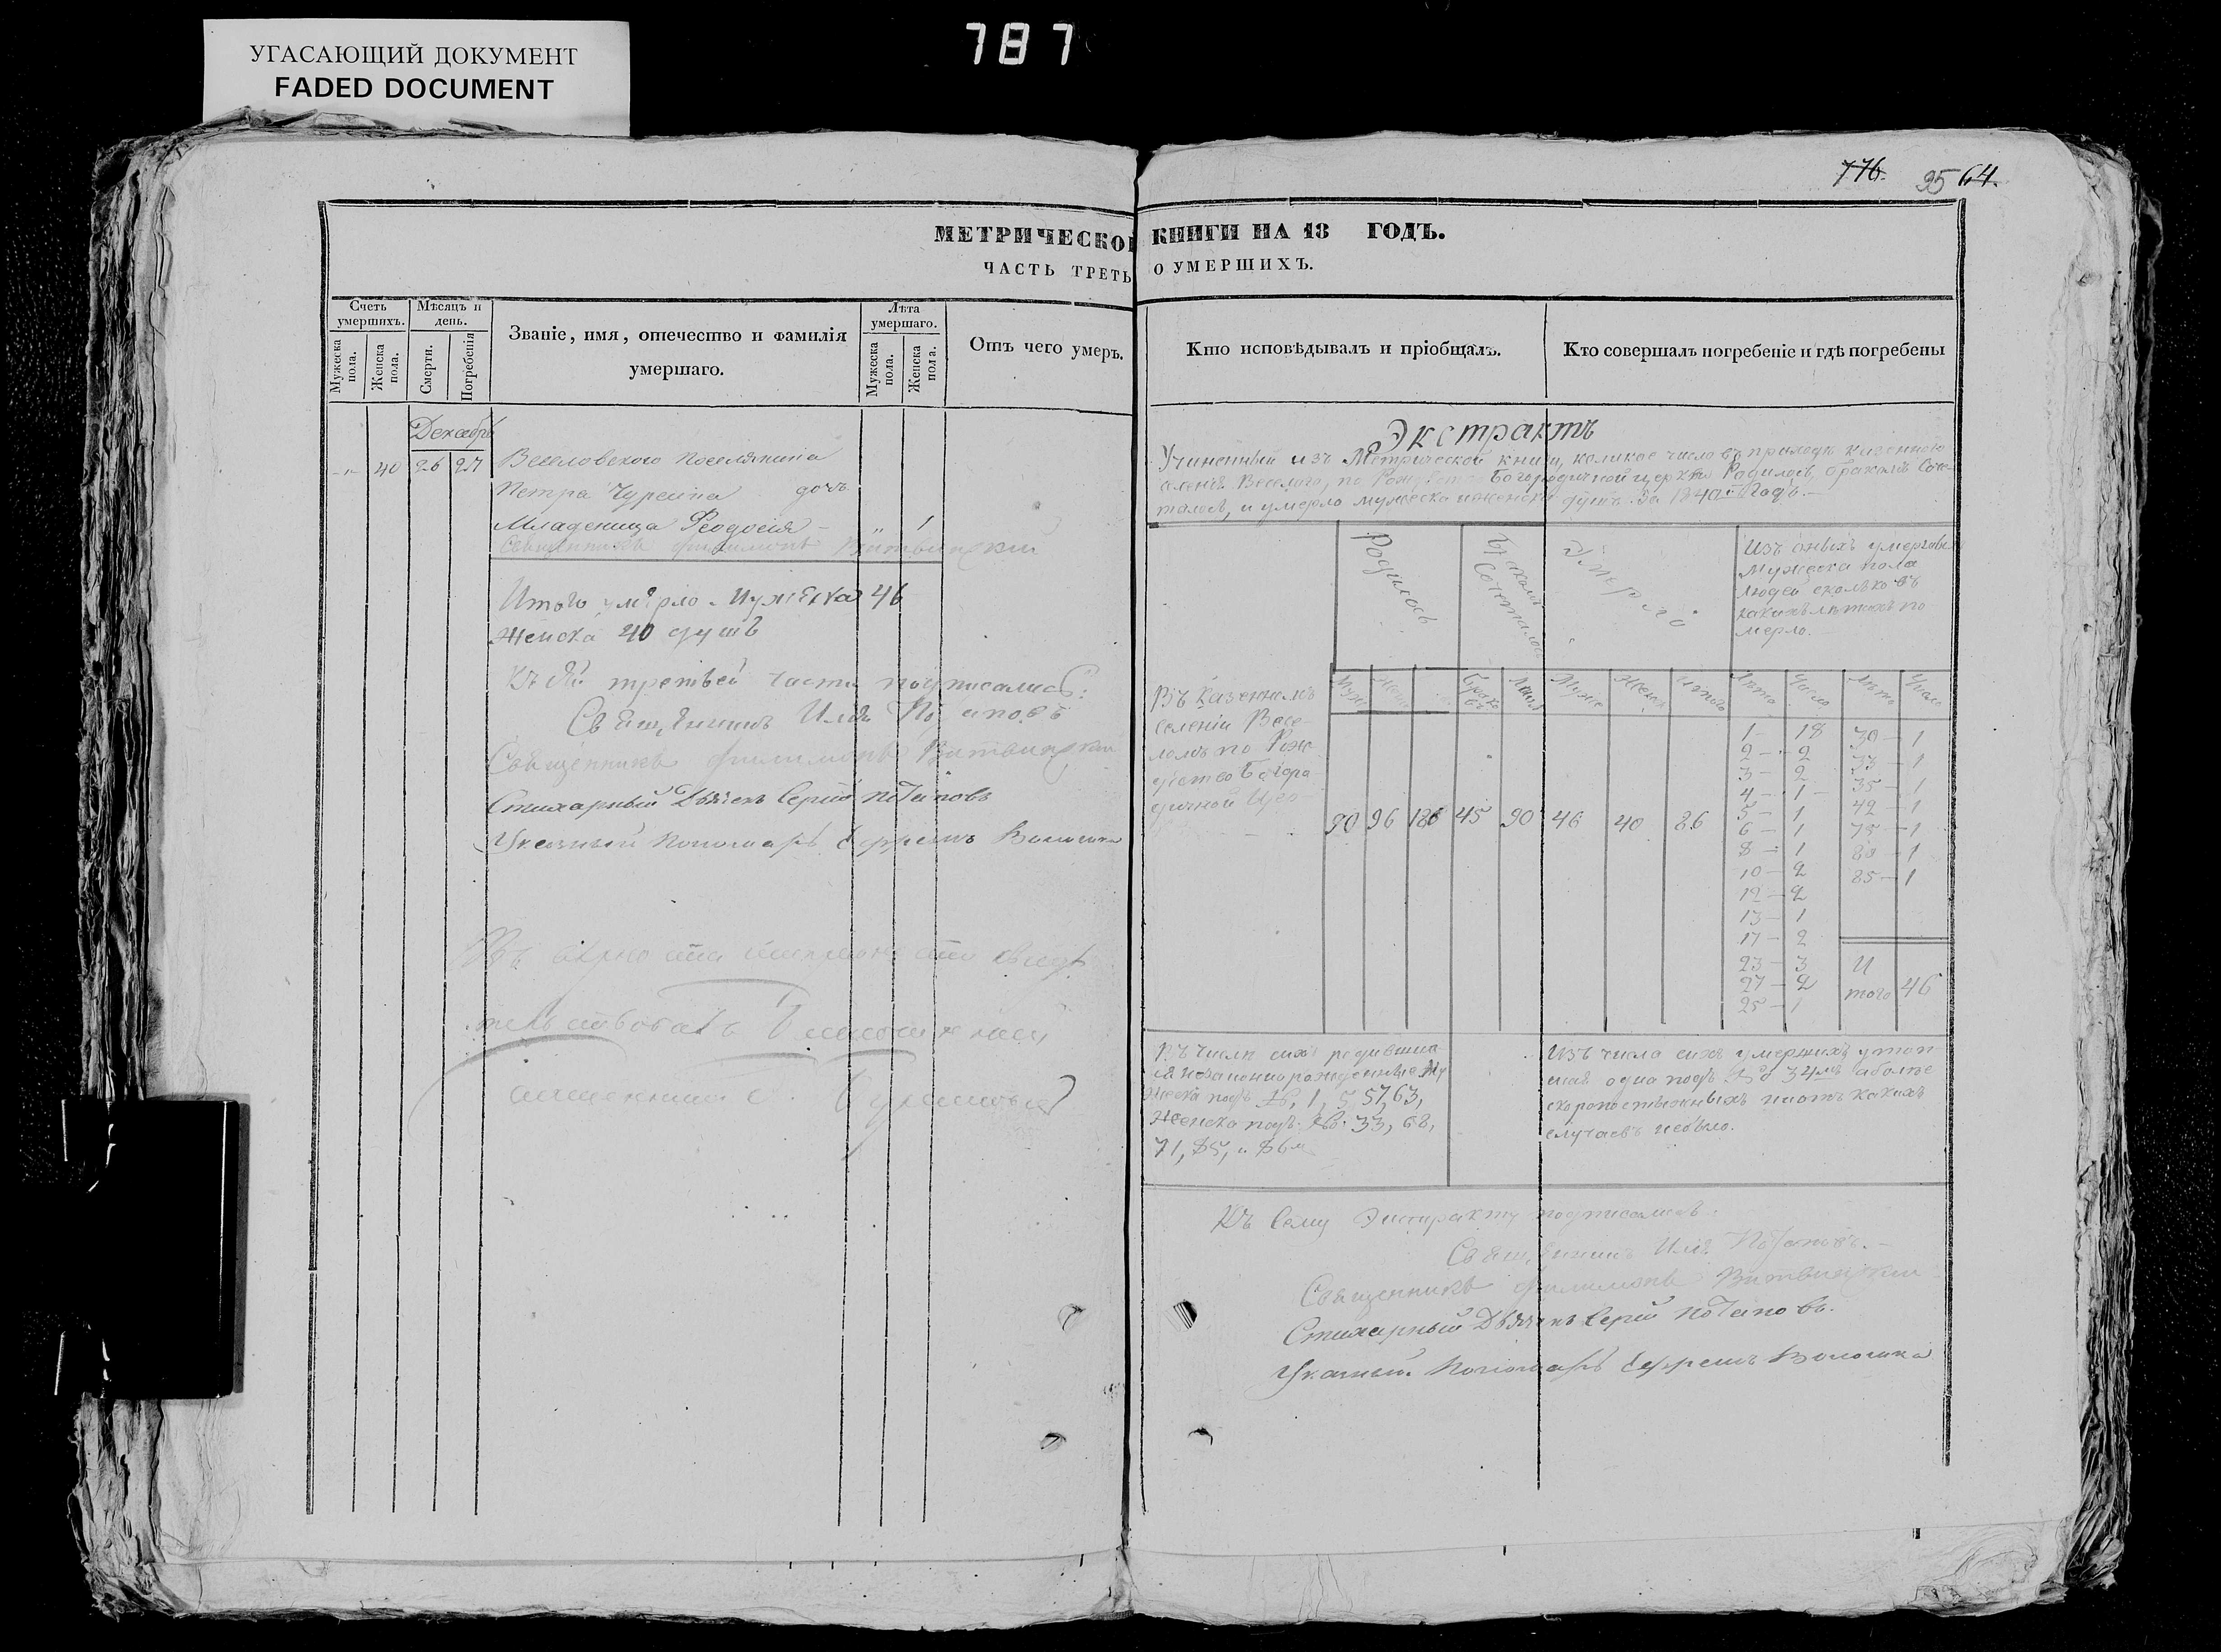 УГАСАЮЩИЙ ДОКУМЕНТ
FADED DOCUMENT
787
776. 95 64.
МЕТРИЧЕСКОЙ КНИГИ НА 18 ГОДЪ.
ЧАСТЬ ТРЕТЬ О УМЕРШИХЪ.
Счетъ умершихъ.
Мужеска пола.
Женска пола.
Мѣсяцъ и день.
Смерти.
Погребенія
Званіе, имя, отечество и фамилія умершаго.
Лѣта умершаго.
Мужеска пола.
Женска пола.
Отъ чего умеръ.
Кто исповѣдывалъ и пріобщалъ.
Кто совершалъ погребеніе и гдѣ погребены
Декабрь
-"- 40 26 27 Веселовского поселянина
Петра дочь
Младеница Феодосія - " 1
Священникъ Филимонъ
Итого умерло Мужеска 46
Женска 40 душъ
Къ сей третьей части подписались:
Священникъ Илія Потаповъ
Священникъ Филимонъ
Стихарный Дьячекъ Сергій Потаповъ
Указный Пономарь Ефремъ Волошка
Экстрактъ
Учиненный изъ Метрической книги, коликое число въ приходѣ казенного
селенія Веселого, по Богородичной церкви Родилось, бракомъ Соче-
талось, и умерло мужеска и женска душъ. За 1840й Годъ.
Родилось
Бракомъ Сочеталось
Умерло
Изъ оныхъ умершихъ
Мужеска пола
людей сколько въ
какихъ лѣтахъ по
мерло.
Въ Казенномъ
селеніи Весе-
ломъ по Рож-
дество Богоро
дичной
90 96 186 45 90 46 40 86
1 - 18 30 - 1
2 - 2 33 - 1
3 - 2 35 - 1
4 - 1 42 - 1
5 - 1 75 - 1
6 - 1 80 - 1
8 - 1 85 - 1
10 - 2
12 - 2
13 - 1
17 - 2
23 - 3 И
27 - 2 того 46
25 - 1
Въ числѣ сихъ родивши
ся незаконнорожденные Му
жеска подъ №, 1, 5, 57, 63,
Женска подъ № 33, 68,
71, 85, и 86м
Изъ числа сихъ умершихъ утоп
шая одна подъ № 34мъ а болѣе
скоропостижныхъ никакихъ
случаевъ небыло.
Къ сему Экстракту подписались:
Священникъ Илія Потаповъ.
Священникъ Филимонъ
Стихарный Дьячекъ Сергій Потаповъ.
Указный Пономарь Ефремъ Волошка